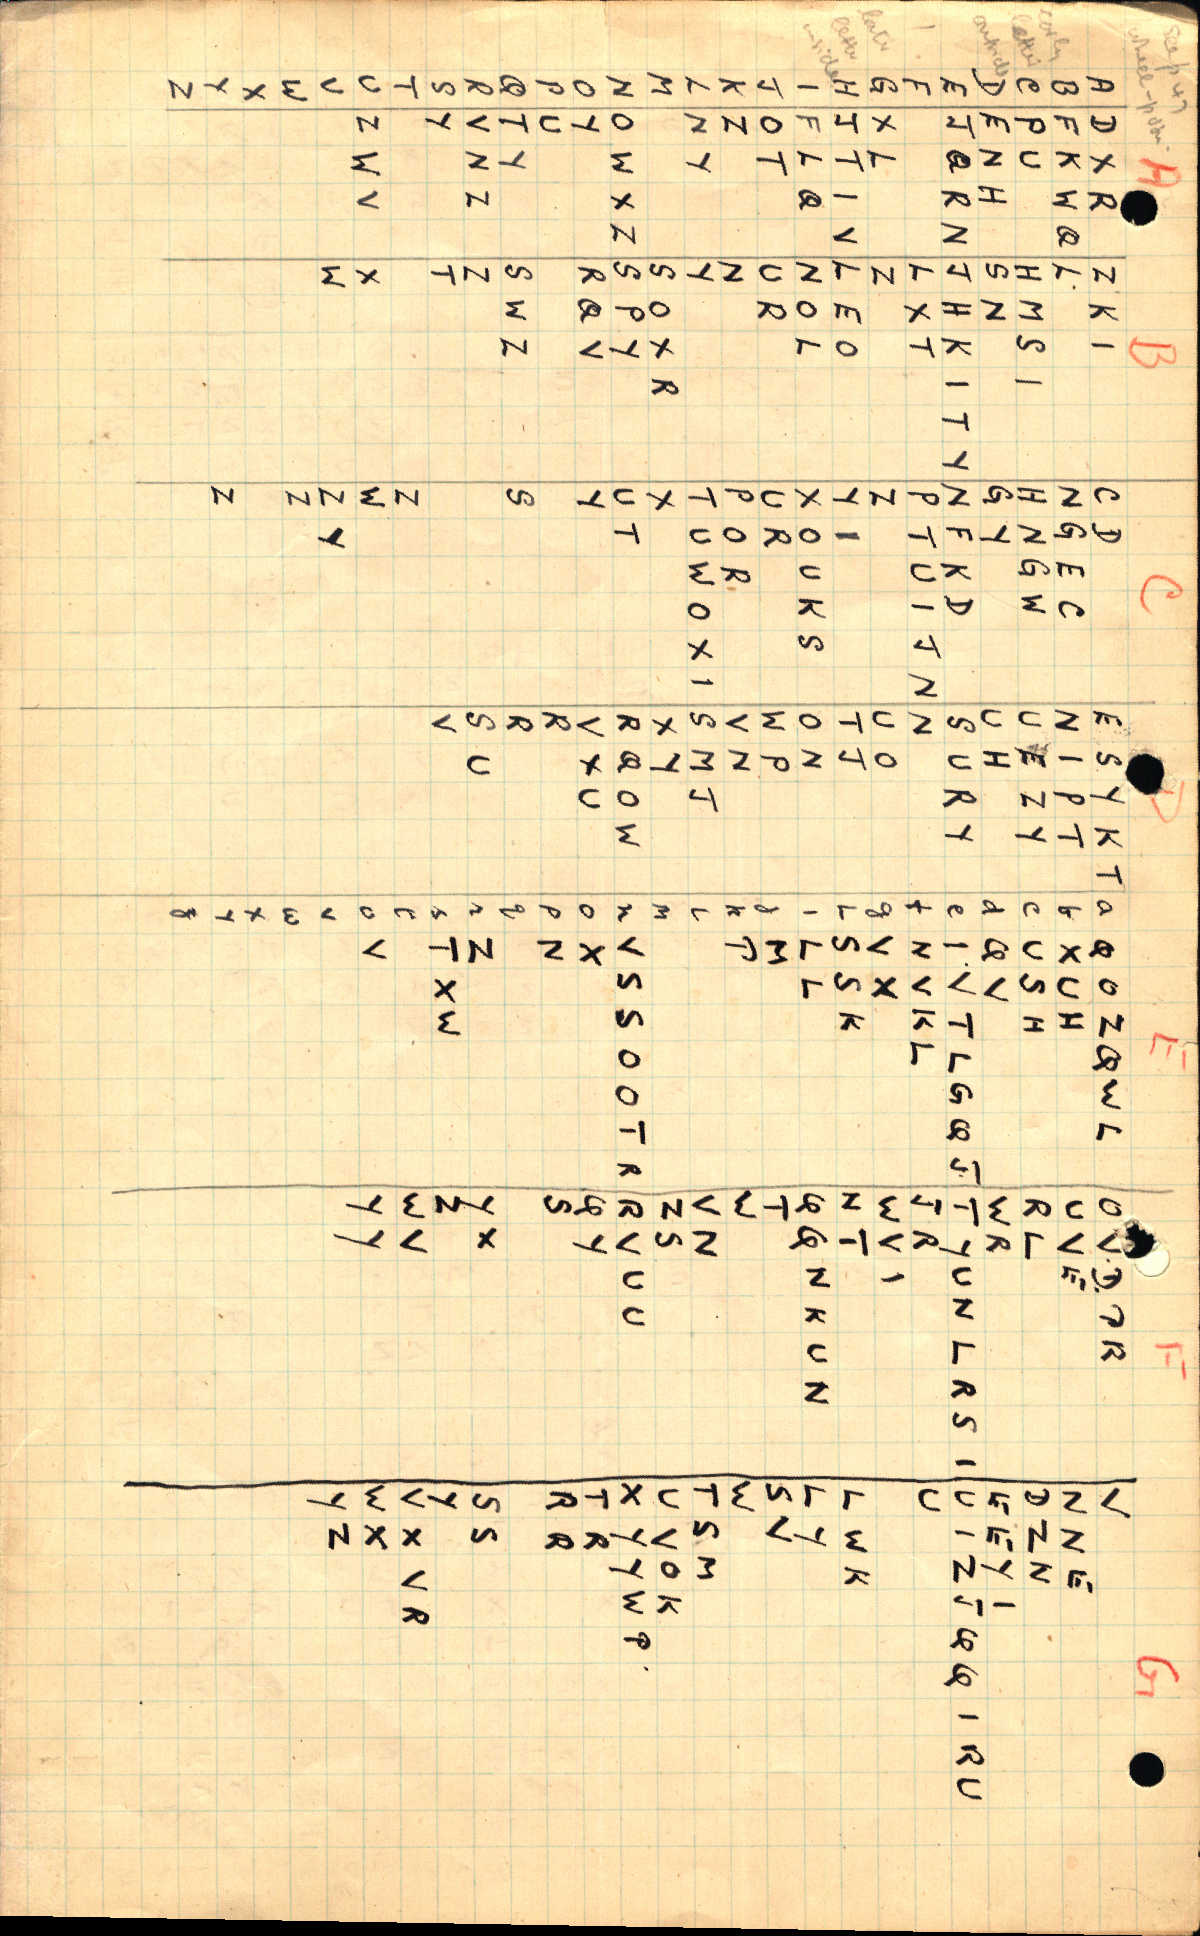 See p 47
wheel-posn.
A B C D E F G
A D X R Z K I C D E S Y K T a Q O Z Q W L O V D P R V
B F K W Q L N G E C N I P T b X U H U V E N N E
C P U H M S I H N G W U E Z Y c U S H R L D Z N
D E N H S N G Y U H d Q V W R E E Y I
E J Q R N J H K I T Y N F K D S U R Y e I V T L G Q J T Y U N L R S I U I Z J Q Q I R U
F L X T P T U I J N N f N V K L J R U
G X L Z Z U O g V X W V I
H J T I V L E O Y I T J L S S K N T L W K
I F L Q N O L X O U K S O N I L L Q Q N K U N L Y
J O T U R U R W P j M T S V
K Z N P O R V N k P W W
L N Y Y T U W O X I S M J L V N T S M
M S O X R X X Y m Z S U V O K
N O W X Z S P Y U T R Q O W n V S S O O T R R V U U X Y Y W P
O Y R Q V Y V X U o X Q Y T R
P U R p N S R R
Q T Y S W Z S R q
R V N Z Z S U r Z Y X S S
S Y T V s T X W Z Y
T Z t W V V X V R
U Z W V X W o V Y Y W X
V W Z Y v Y Z
W Z w
X x
Y Z Y
Z z
early
letter
outside
late
letter
inside